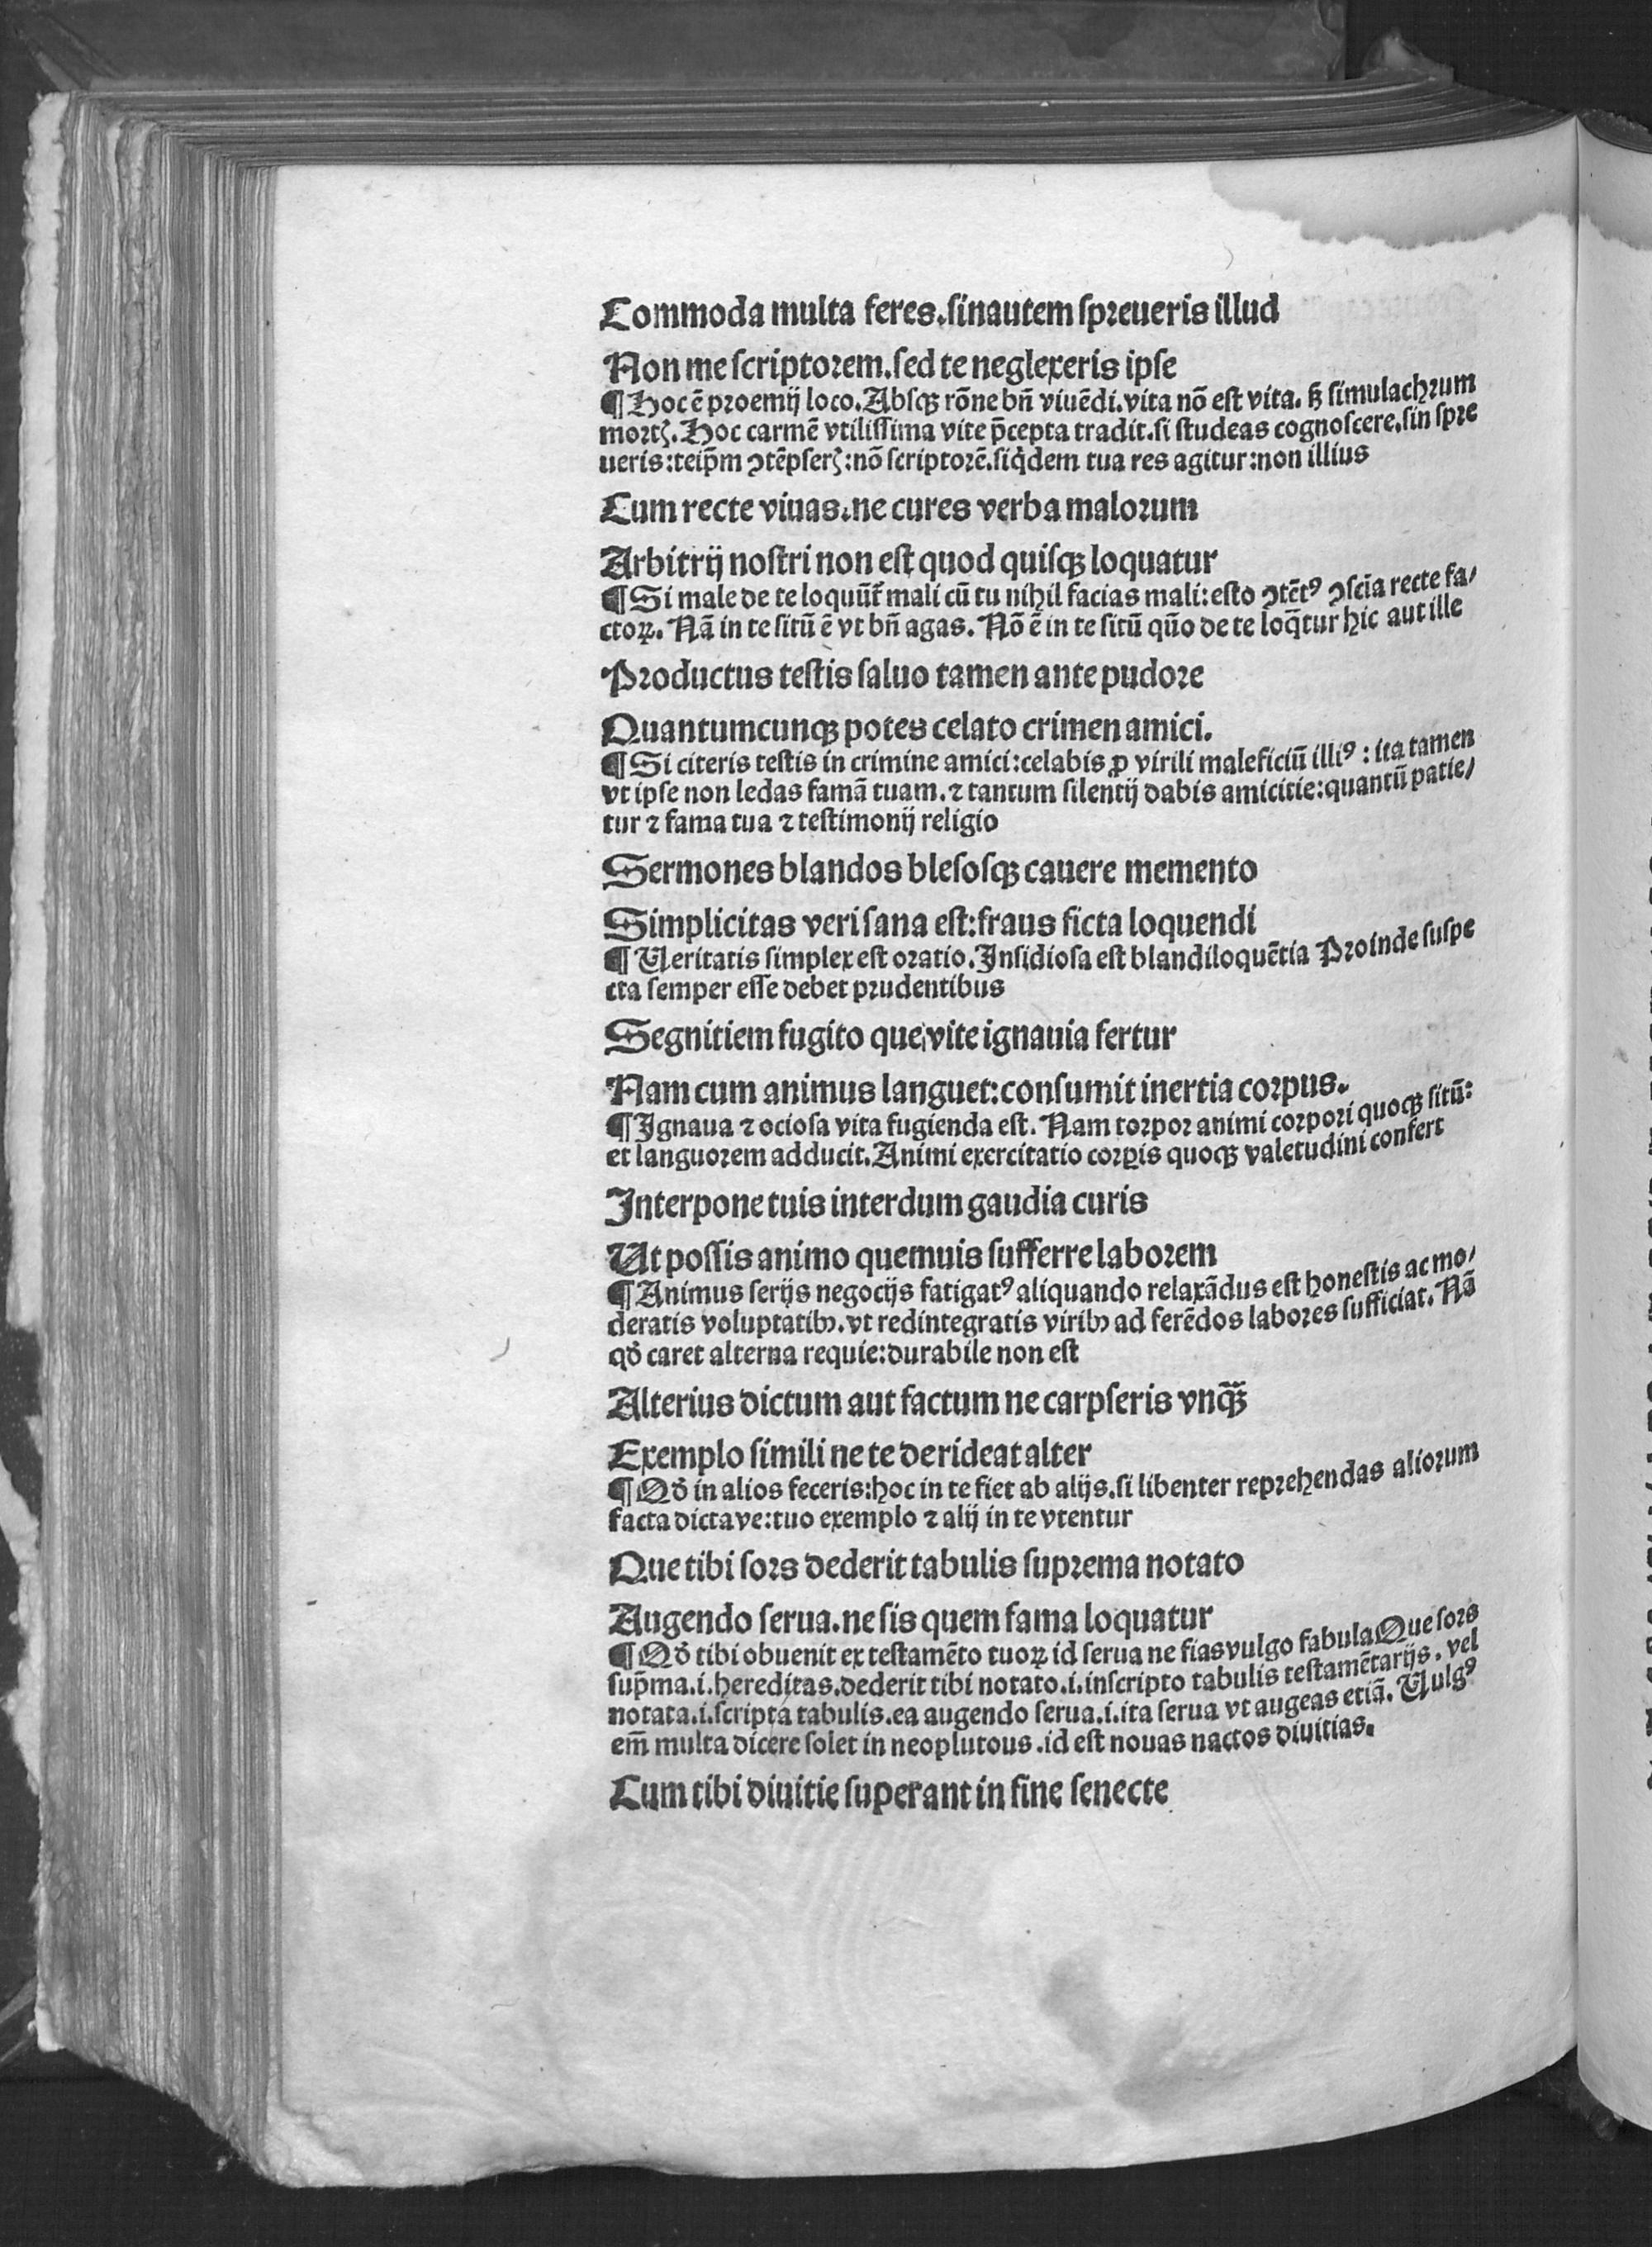 Commoda multa feres.sinautem spreueris illud
Non me scriptorem.sed te neglexeris ipse
¶ Hoc ē proemij loco.Absqꝫ rōne bñ viuēdi.vita nō est vita. sꝫ simulachrum
mortꝭ.Hoc carmē vtilissima vite p̄cepta tradit.si studeas cognoscere.sin spre
ueris:teip̄m ꝯtēpserꝭ:nō scriptorē.siqͥdem tua res agitur:non illius
Cum recte viuas.ne cures verba malorum
Arbitrij nostri non est quod quisqꝫ loquatur
¶ Si male de te loquūt̄ mali cū tu nihil facias mali:esto ꝯtētꝰ ꝯscīa recte fa/
ctoꝝ. Nā in te sitū ē vt bñ agas. Nō ē in te sitū qūo de te loq̄tur hic aut ille
Productus testis saluo tamen ante pudore
Quantumcunqꝫ potes celato crimen amici.
¶ Si citeris testis in crimine amici:celabis ꝓ virili maleficiū illiꝰ : ita tamen
vt ipse non ledas famā tuam.⁊ tantum silentij dabis amicitie:quantū patie/
tur ⁊ fama tua ⁊ testimonij religio
Sermones blandos blesosqꝫ cauere memento
Simplicitas veri sana est:fraus ficta loquendi
¶ Veritatis simplex est oratio.Insidiosa est blandiloquētia Proinde suspe
cta semper esse debet prudentibus
Segnitiem fugito que vite ignauia fertur
Nam cum animus languet:consumit inertia corpus.
¶ Ignaua ⁊ ociosa vita fugienda est. Nam torpor animi corpori quoqꝫ sitū:
et languorem adducit.Animi exercitatio corꝑis quoqꝫ valetudini confert
Interpone tuis interdum gaudia curis
Ut possis animo quemuis sufferre laborem
¶ Animus serijs negocijs fatigatꝰ aliquando relaxādus est honestis ac mo/
deratis voluptatibꝫ.vt redintegratis viribꝫ ad ferēdos labores sufficiat. Nā
qđ caret alterna requie:durabile non est
Alterius dictum aut factum ne carpseris vnqꝫ̄
Exemplo simili ne te derideat alter
¶ Qđ in alios feceris:hoc in te fiet ab alijs.si libenter reprehendas aliorum
facta dictave:tuo exemplo ⁊ alij in te vtentur
Que tibi sors dederit tabulis suprema notato
Augendo serua.ne sis quem fama loquatur
¶ Qđ tibi obuenit ex testamēto tuoꝝ id serua ne fias vulgo fabula Que sors
sup̄ma.i.hereditas.dederit tibi notato.i.inscripto tabulis testamētarijs. vel
notata.i.scripta tabulis.ea augendo serua.i.ita serua vt augeas etiā. Vulgꝰ
em̄ multa dicere solet in neoplutous .id est nouas nactos diuitias.
Cum tibi diuitie superant in fine senecte